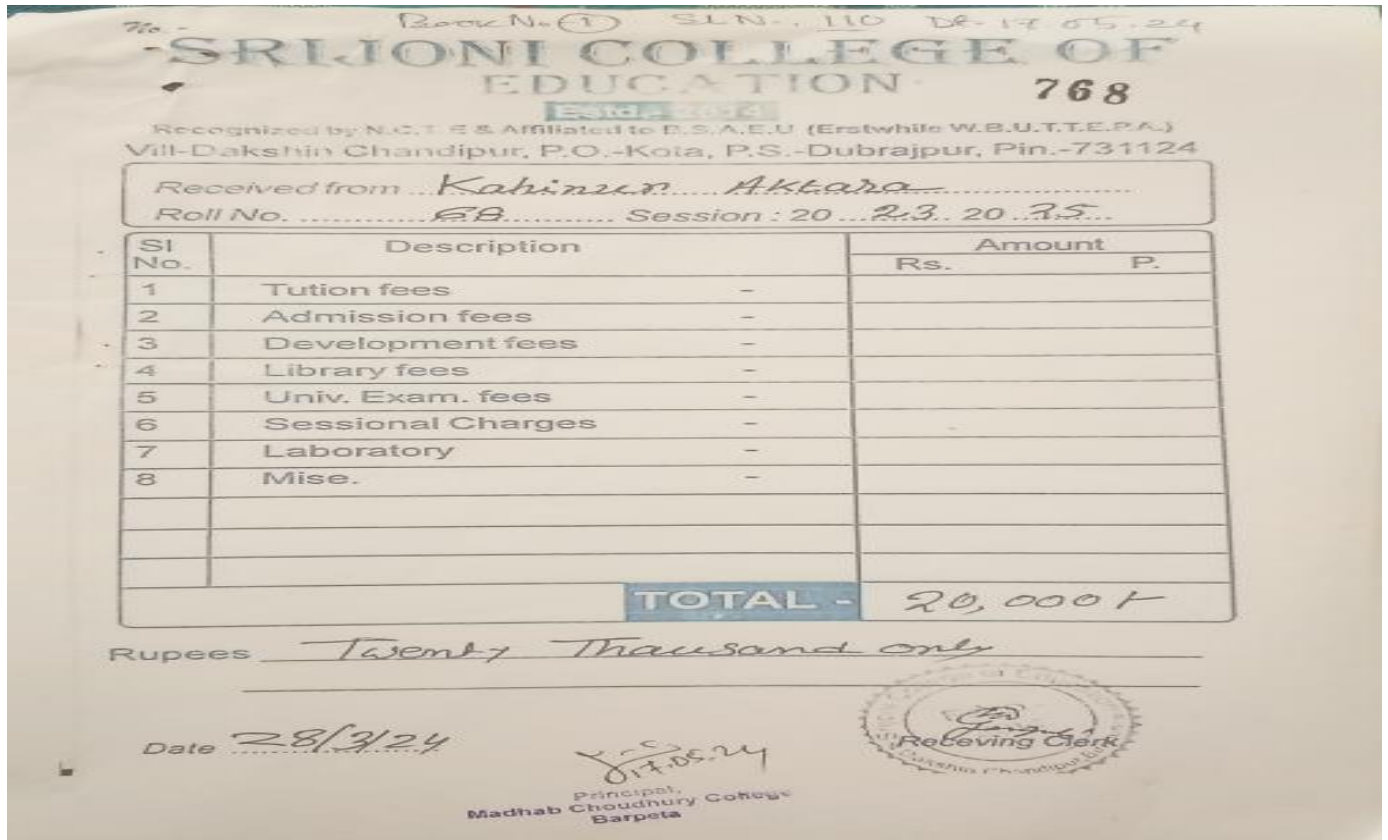 No - Book No (1) SLN-. 110 Dt-17.05.24
SRIJONI COLLEGE OF
EDUCATION
768
Estd.- 2014
Recognized by N.C.T.E & Affiliated to B.S.A.E.U (Erstwhile W.B.U.T.T.E.P.A.)
Vill-Dakshin Chandipur, P.O.-Kota, P.S.-Dubrajpur, Pin.-731124
Received from Kahinur Aktara
Roll No. 68 Session : 20 23 20 25
Sl No. Description Amount
Rs. P.
1 Tution fees -
2 Admission fees -
3 Development fees -
4 Library fees -
5 Univ. Exam. fees -
6 Sessional Charges -
7 Laboratory -
8 Mise. -
TOTAL - 20,000/-
Rupees Twenty Thausand only
Date 28/3/24
17.05.24
Receving Clerk
Principal,
Madhab Choudhury College
Barpeta